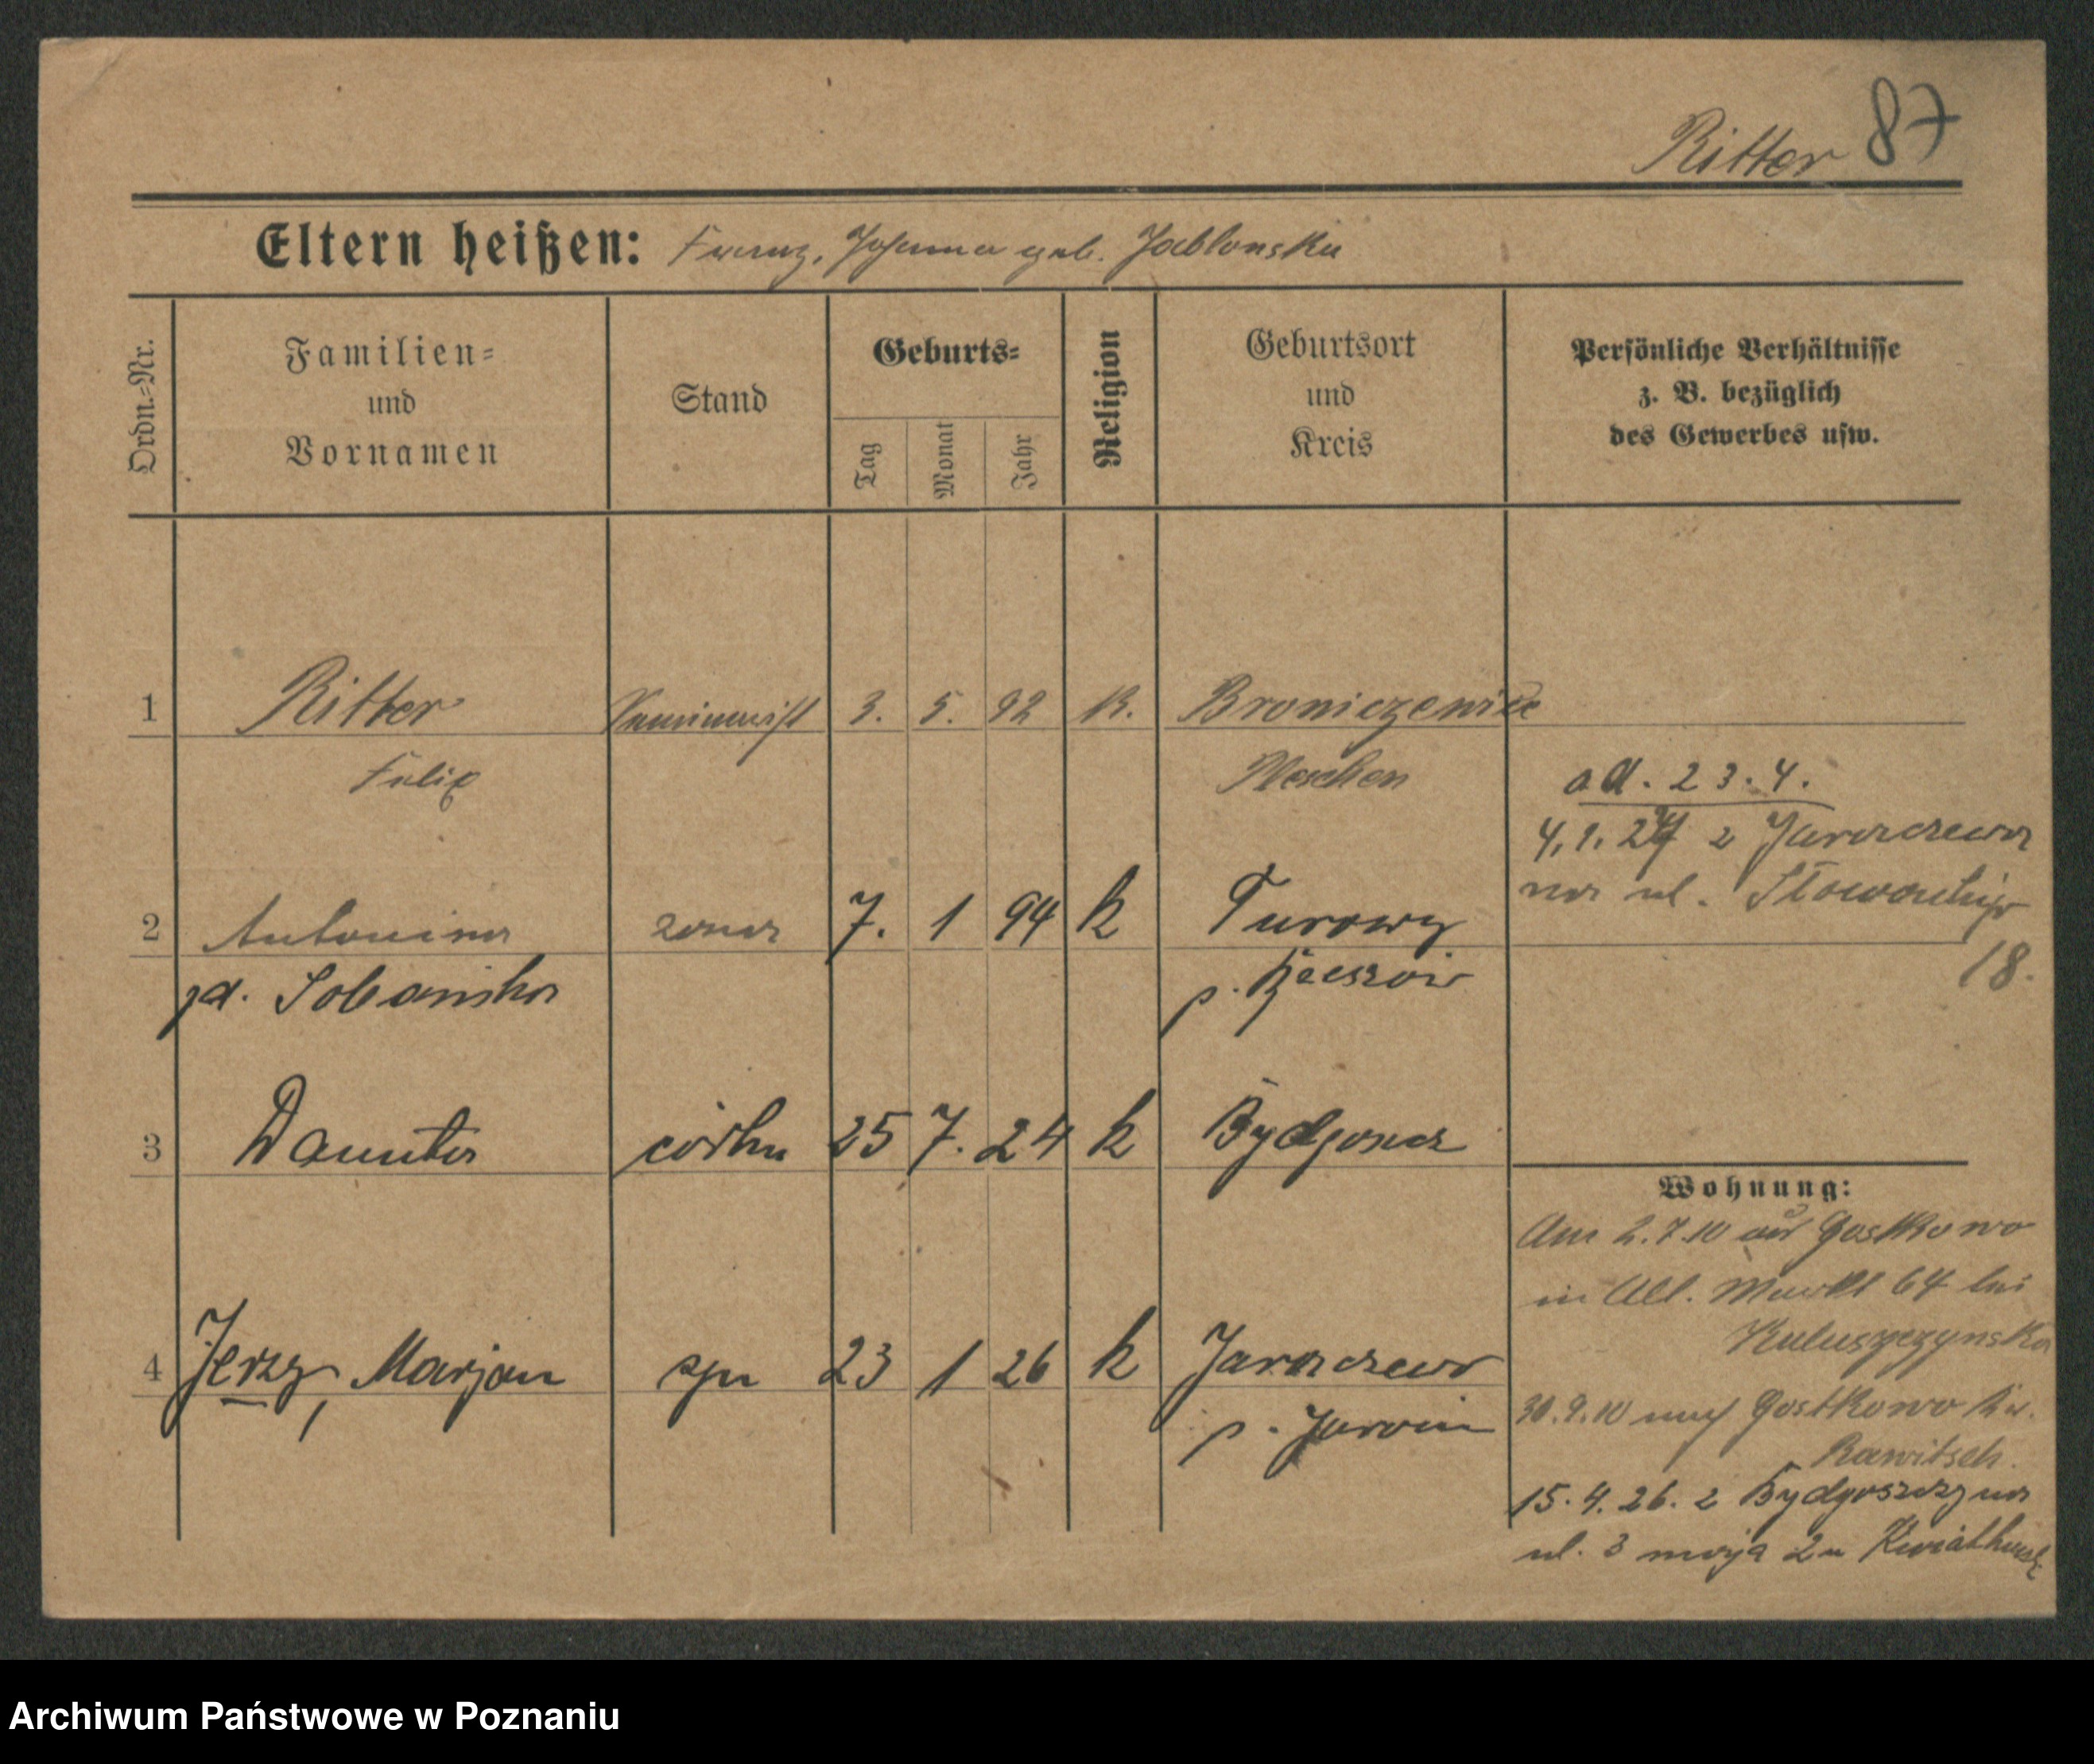 Ritter 87
Eltern heißen: Franz, Johanna geb. Jablonska
Ordn.-Nr.
Familien-
und
Vornamen
Stand
Geburts-
Tag
Monat
Jahr
Religion
Geburtsort
und
Kreis
Persönliche Verhältnisse
z. B. bezüglich
des Gewerbes usw.
1 Ritter 3. 5. 92 K. Broniczewice
Felix Pleschen
ad. 23.4.
4.1.27 z Jaraczewa
na ul. Słowackiego
18.
2 Antonina zona 7. 1 94 k Turowy
zd. Sobańska p.
3 Danuta córka 25 7. 24 k Bydgoszcz
4 Jerzy, Marjan syn 23 1 26 k Jaraczewo
p. Jarocin
Wohnung:
Am 2.7.10 aus Gostkowo
in Alt. Markt 64 bei
30.9.10 nach Gostkowo Kr.
Rawitsch.
15.4.26. z Bydgoszczy na
ul. 3 maja 2 u
Archiwum Państwowe w Poznaniu